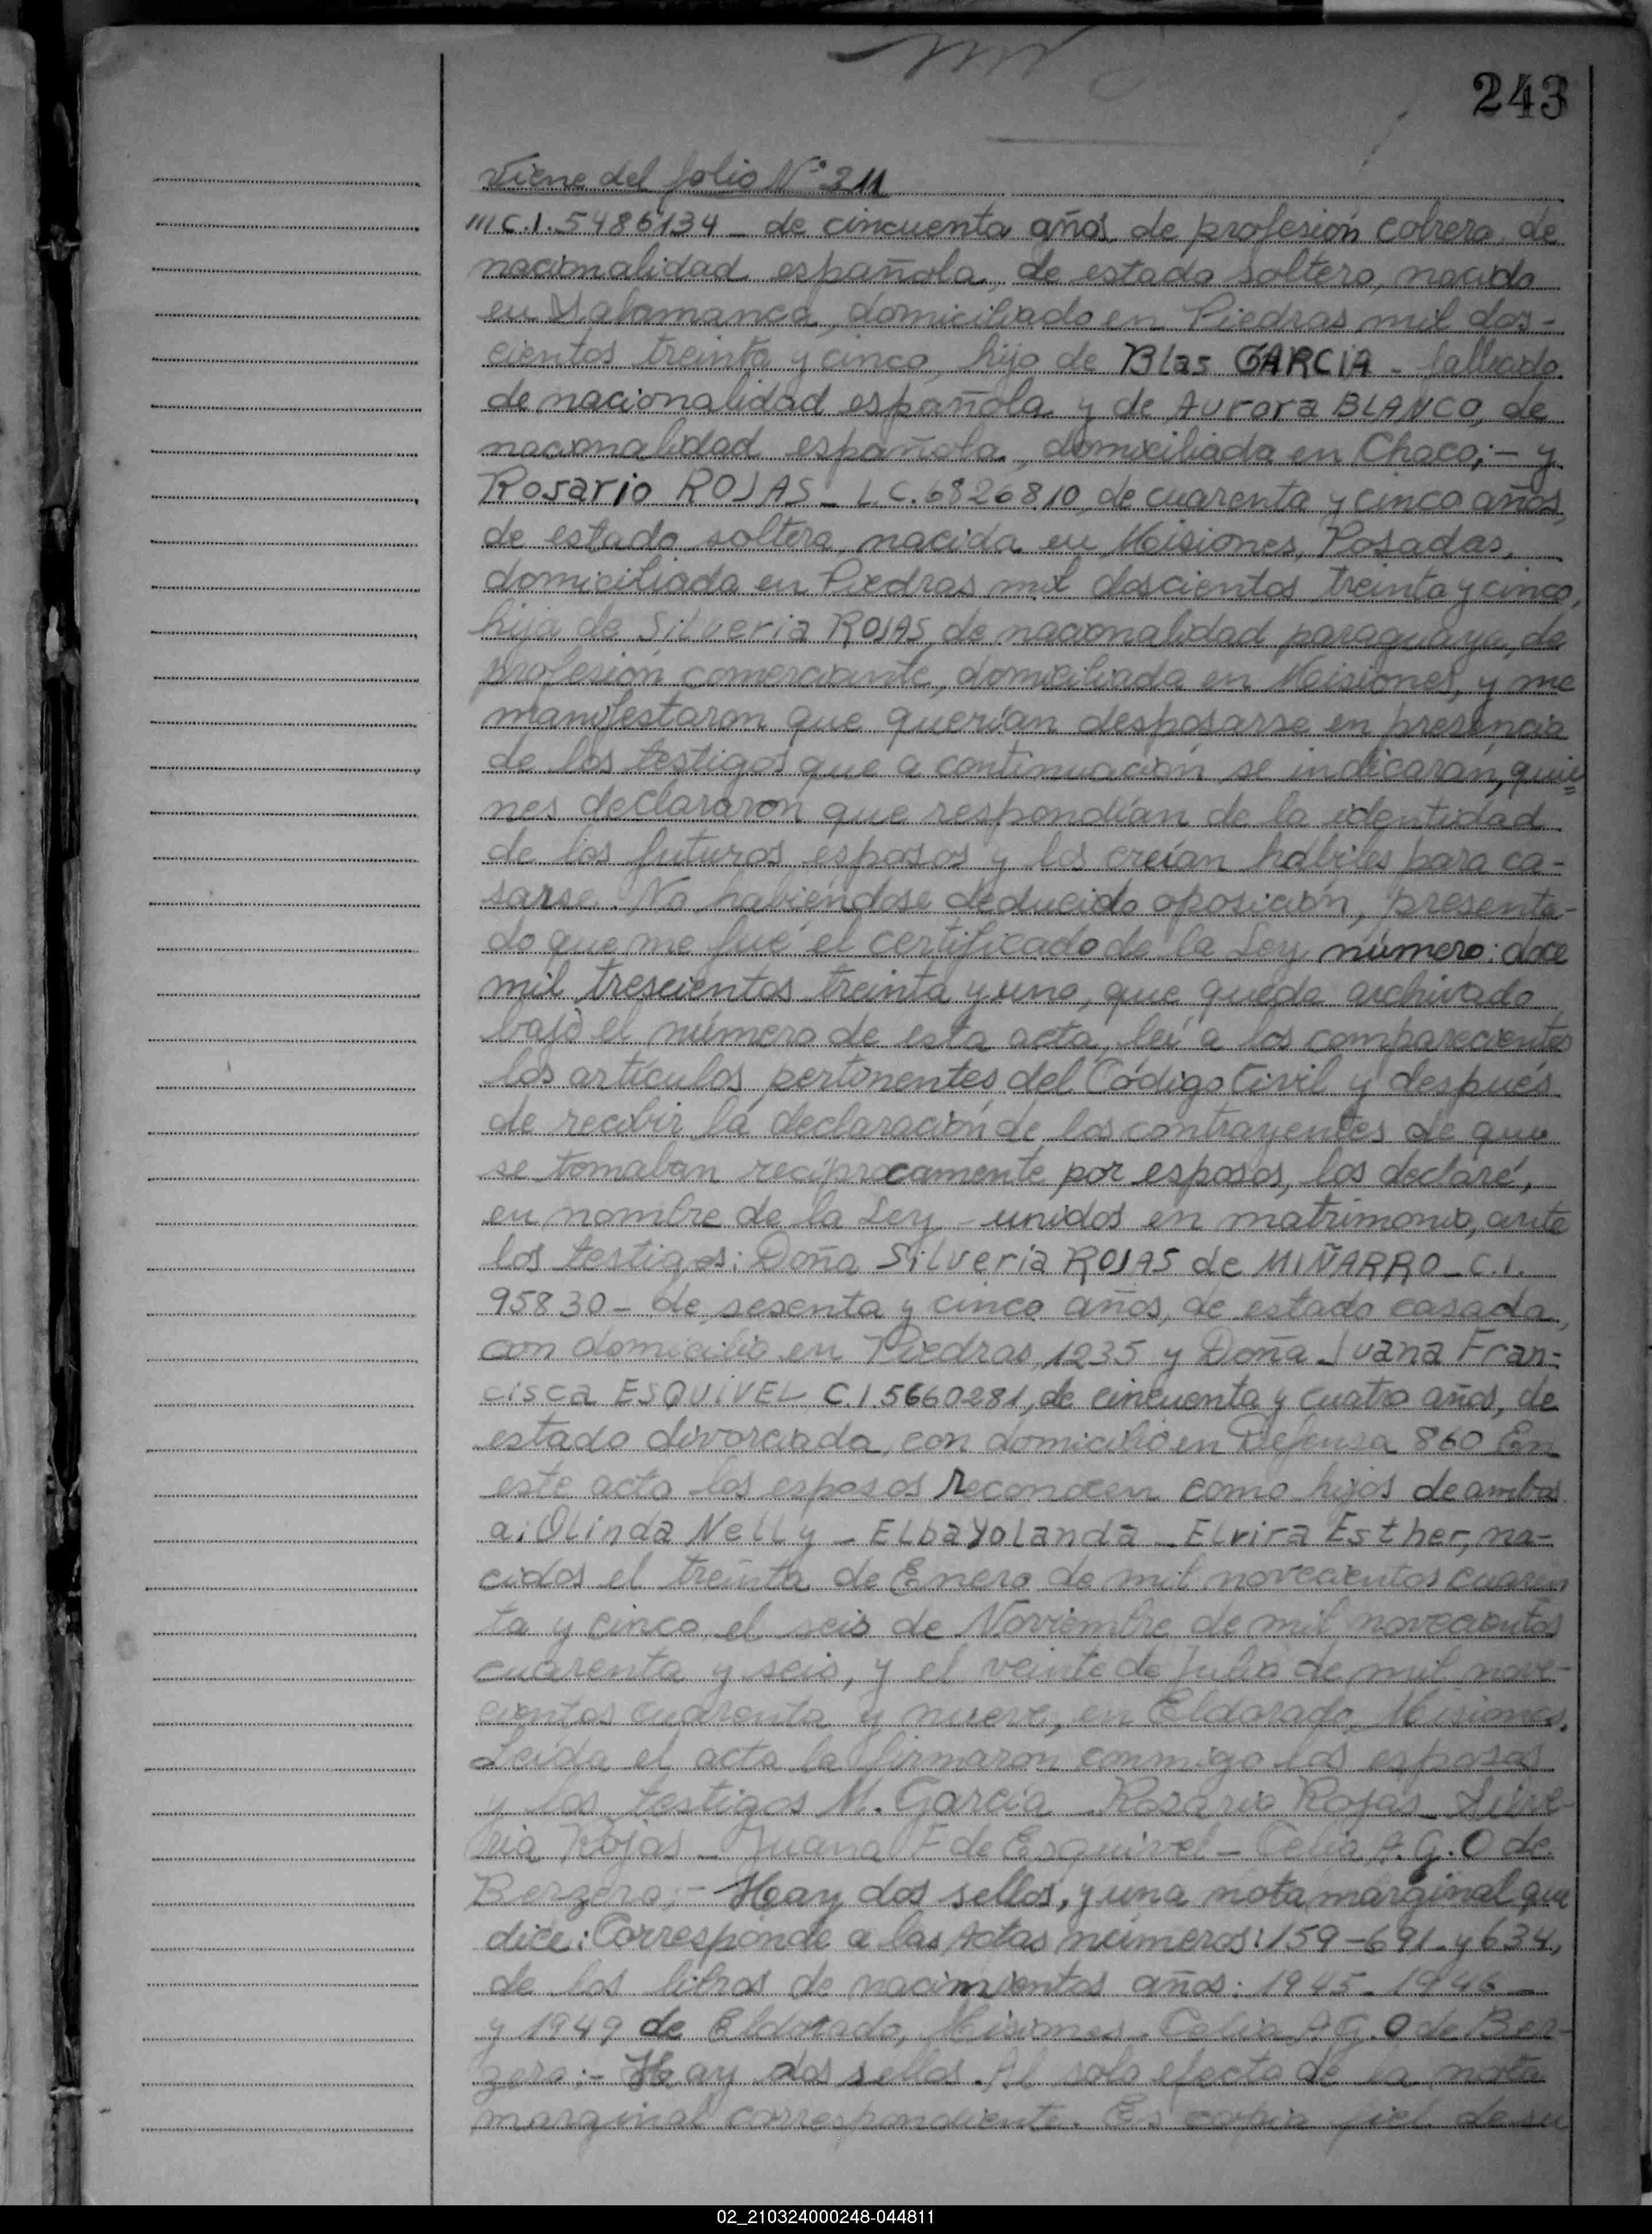 243
Viene del folio Nº 211
/// C.I. 5486134 - de cincuenta años, de profesión cobrero, de
nacionalidad española, de estado soltero, nacido
en Salamanca, domiciliado en Piedras mil dos-
cientos treinta y cinco, hijo de Blas GARCIA - fallecido
de nacionalidad española y de Aurora BLANCO, de
nacionalidad española, domiciliada en Chaco; - y
Rosario ROJAS - L.C. 6826810, de cuarenta y cinco años,
de estado soltera, nacida en Misiones, Posadas,
domiciliada en Piedras mil doscientos treinta y cinco,
hija de Silveria ROJAS, de nacionalidad paraguaya, de
profesión comerciante, domiciliada en Misiones, y me
manifestaron que querían desposarse en presencia
de los testigos que a continuación se indicarán, quie=
nes declararon que respondían de la identidad
de los futuros esposos y los creían hábiles para ca-
sarse. No habiéndose deducido oposición, presenta-
do que me fué el certificado de la Ley número: doce
mil trescientos treinta y uno, que queda archivado
bajo el número de esta acta, leí a los comparecientes
los artículos pertinentes del Código Civil y después
de recibir la declaración de los contrayentes de que
se tomaban recíprocamente por esposos, los declaré,
en nombre de la Ley - unidos en matrimonio, ante
los testigos: Doña Silveria ROJAS de MIÑARRO - C.I.
95830 - de sesenta y cinco años, de estado casada,
con domicilio en Piedras 1235 y Doña Juana Fran-
cisca ESQUIVEL C.I. 5660281, de cincuenta y cuatro años, de
estado divorciada, con domicilio en Defensa 860 En
este acto los esposos reconocen como hijos de ambos
a: Olinda Nelly - Elba Yolanda - Elvira Esther, na-
cidos el treinta de Enero de mil novecientos cuaren
ta y cinco, el seis de Noviembre de mil novecientos
cuarenta y seis, y el veinte de Julio de mil nove-
cientos cuarenta y nueve, en Eldorado, Misiones.
Leída el acta la firmaron conmigo los esposos
y los testigos M. García - Rosario Rojas - Silve-
ria Rojas - Juana F de Esquivel - Celia A. G. O de
Bergero; - Hay dos sellos, y una nota marginal que
dice: Corresponde a las Actas números: 159 - 691 - y 634,
de los libros de nacimientos años: 1945 - 1946 -
y 1949 de Eldorado, Misiones. Celia A.G. O de Ber-
gero; - Hay dos sellos. Al solo efecto de la nota
marginal correspondiente. Es copia fiel de su
02_210324000248-044811